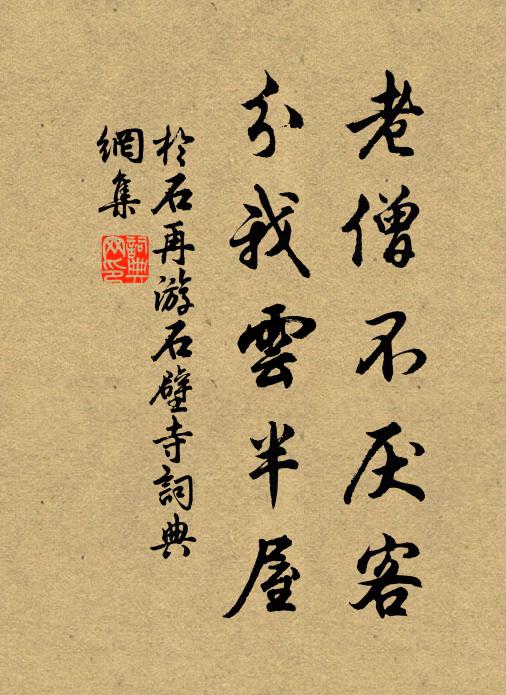 老僧不厌客
分我雲半屋
於石再游石壁寺詞典
網集
詞典
网印